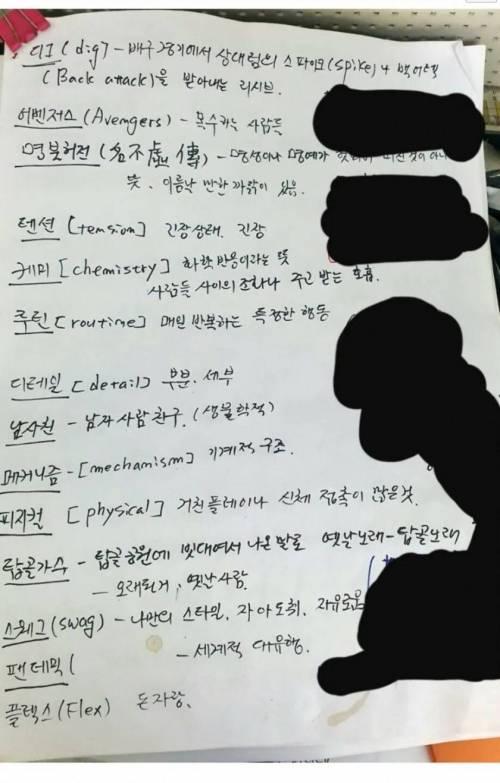 디그(dig) - 배구경기에서 상대팀의 스파이크(spike)나 백어택
(Back attack)을 받아내는 리시브.
어벤저스(Avengers) - 복수하는 사람들
명불허전(名不虛傳) - 명성이나 명예가
뜻. 이름날 만한 까닭이 있음.
텐션 [tension] 긴장상태. 긴장
케미 [chemistry] 화학반응이라는 뜻
사람들 사이의 조화나 주고 받는 호흡.
루틴 [routine] 매일 반복하는 특정한 행동
디테일 [detail] 부분. 세부
남사친 - 남자 사람 친구. (생물학적)
메커니즘 - [mechanism] 기계적 구조.
피지컬 [physical] 거친 플레이나 신체 접촉이 많은것.
탑골가수 - 탑골공원에 빗대여서 나온 말로 옛날노래 - 탑골노래
- 오래되거, 옛날사람.
스웨그(swag) - 나만의 스타일, 자아도취, 자유로움
팬데믹( - 세계적 대유행.
플렉스(Flex) 돈자랑.